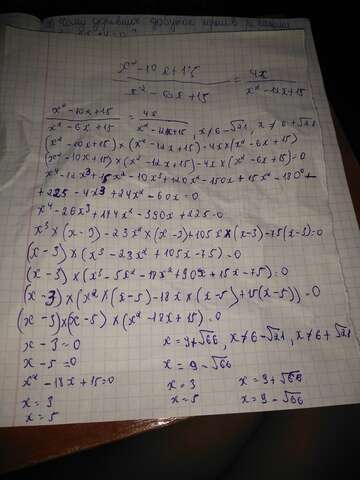 x² - 10x + 15 / x² - 6x + 15 = 4x / x² - 12x + 15
x² - 10x + 15 / x² - 6x + 15 = 4x / x² - 12x + 15, x ≠ 6 - √21, x ≠ 6 + √21
(x² - 10x + 15) × (x² - 12x + 15) = 4x × (x² - 6x + 15)
(x² - 10x + 15) × (x² - 12x + 15) - 4x × (x² - 6x + 15) = 0
x⁴ - 12x³ + 15x² - 10x³ + 120x² - 150x + 15x² - 180x +
+ 225 - 4x³ + 24x² - 60x = 0
x⁴ - 26x³ + 174x² - 390x + 225 = 0
x³ × (x - 3) - 23x² × (x - 3) + 105x × (x - 3) - 75(x - 3) = 0
(x - 3) × (x³ - 23x² + 105x - 75) = 0
(x - 3) × (x³ - 5x² - 18x² + 90x + 15x - 75) = 0
(x - 3) × (x² × (x - 5) - 18x × (x - 5) + 15(x - 5)) = 0
(x - 3) × (x - 5) × (x² - 18x + 15) = 0
x - 3 = 0 x = 9 + √66, x ≠ 6 - √21, x ≠ 6 + √21
x - 5 = 0 x = 9 - √66
x² - 18x + 15 = 0 x = 3 x = 9 + √66
x = 3 x = 5 x = 9 - √66
x = 5